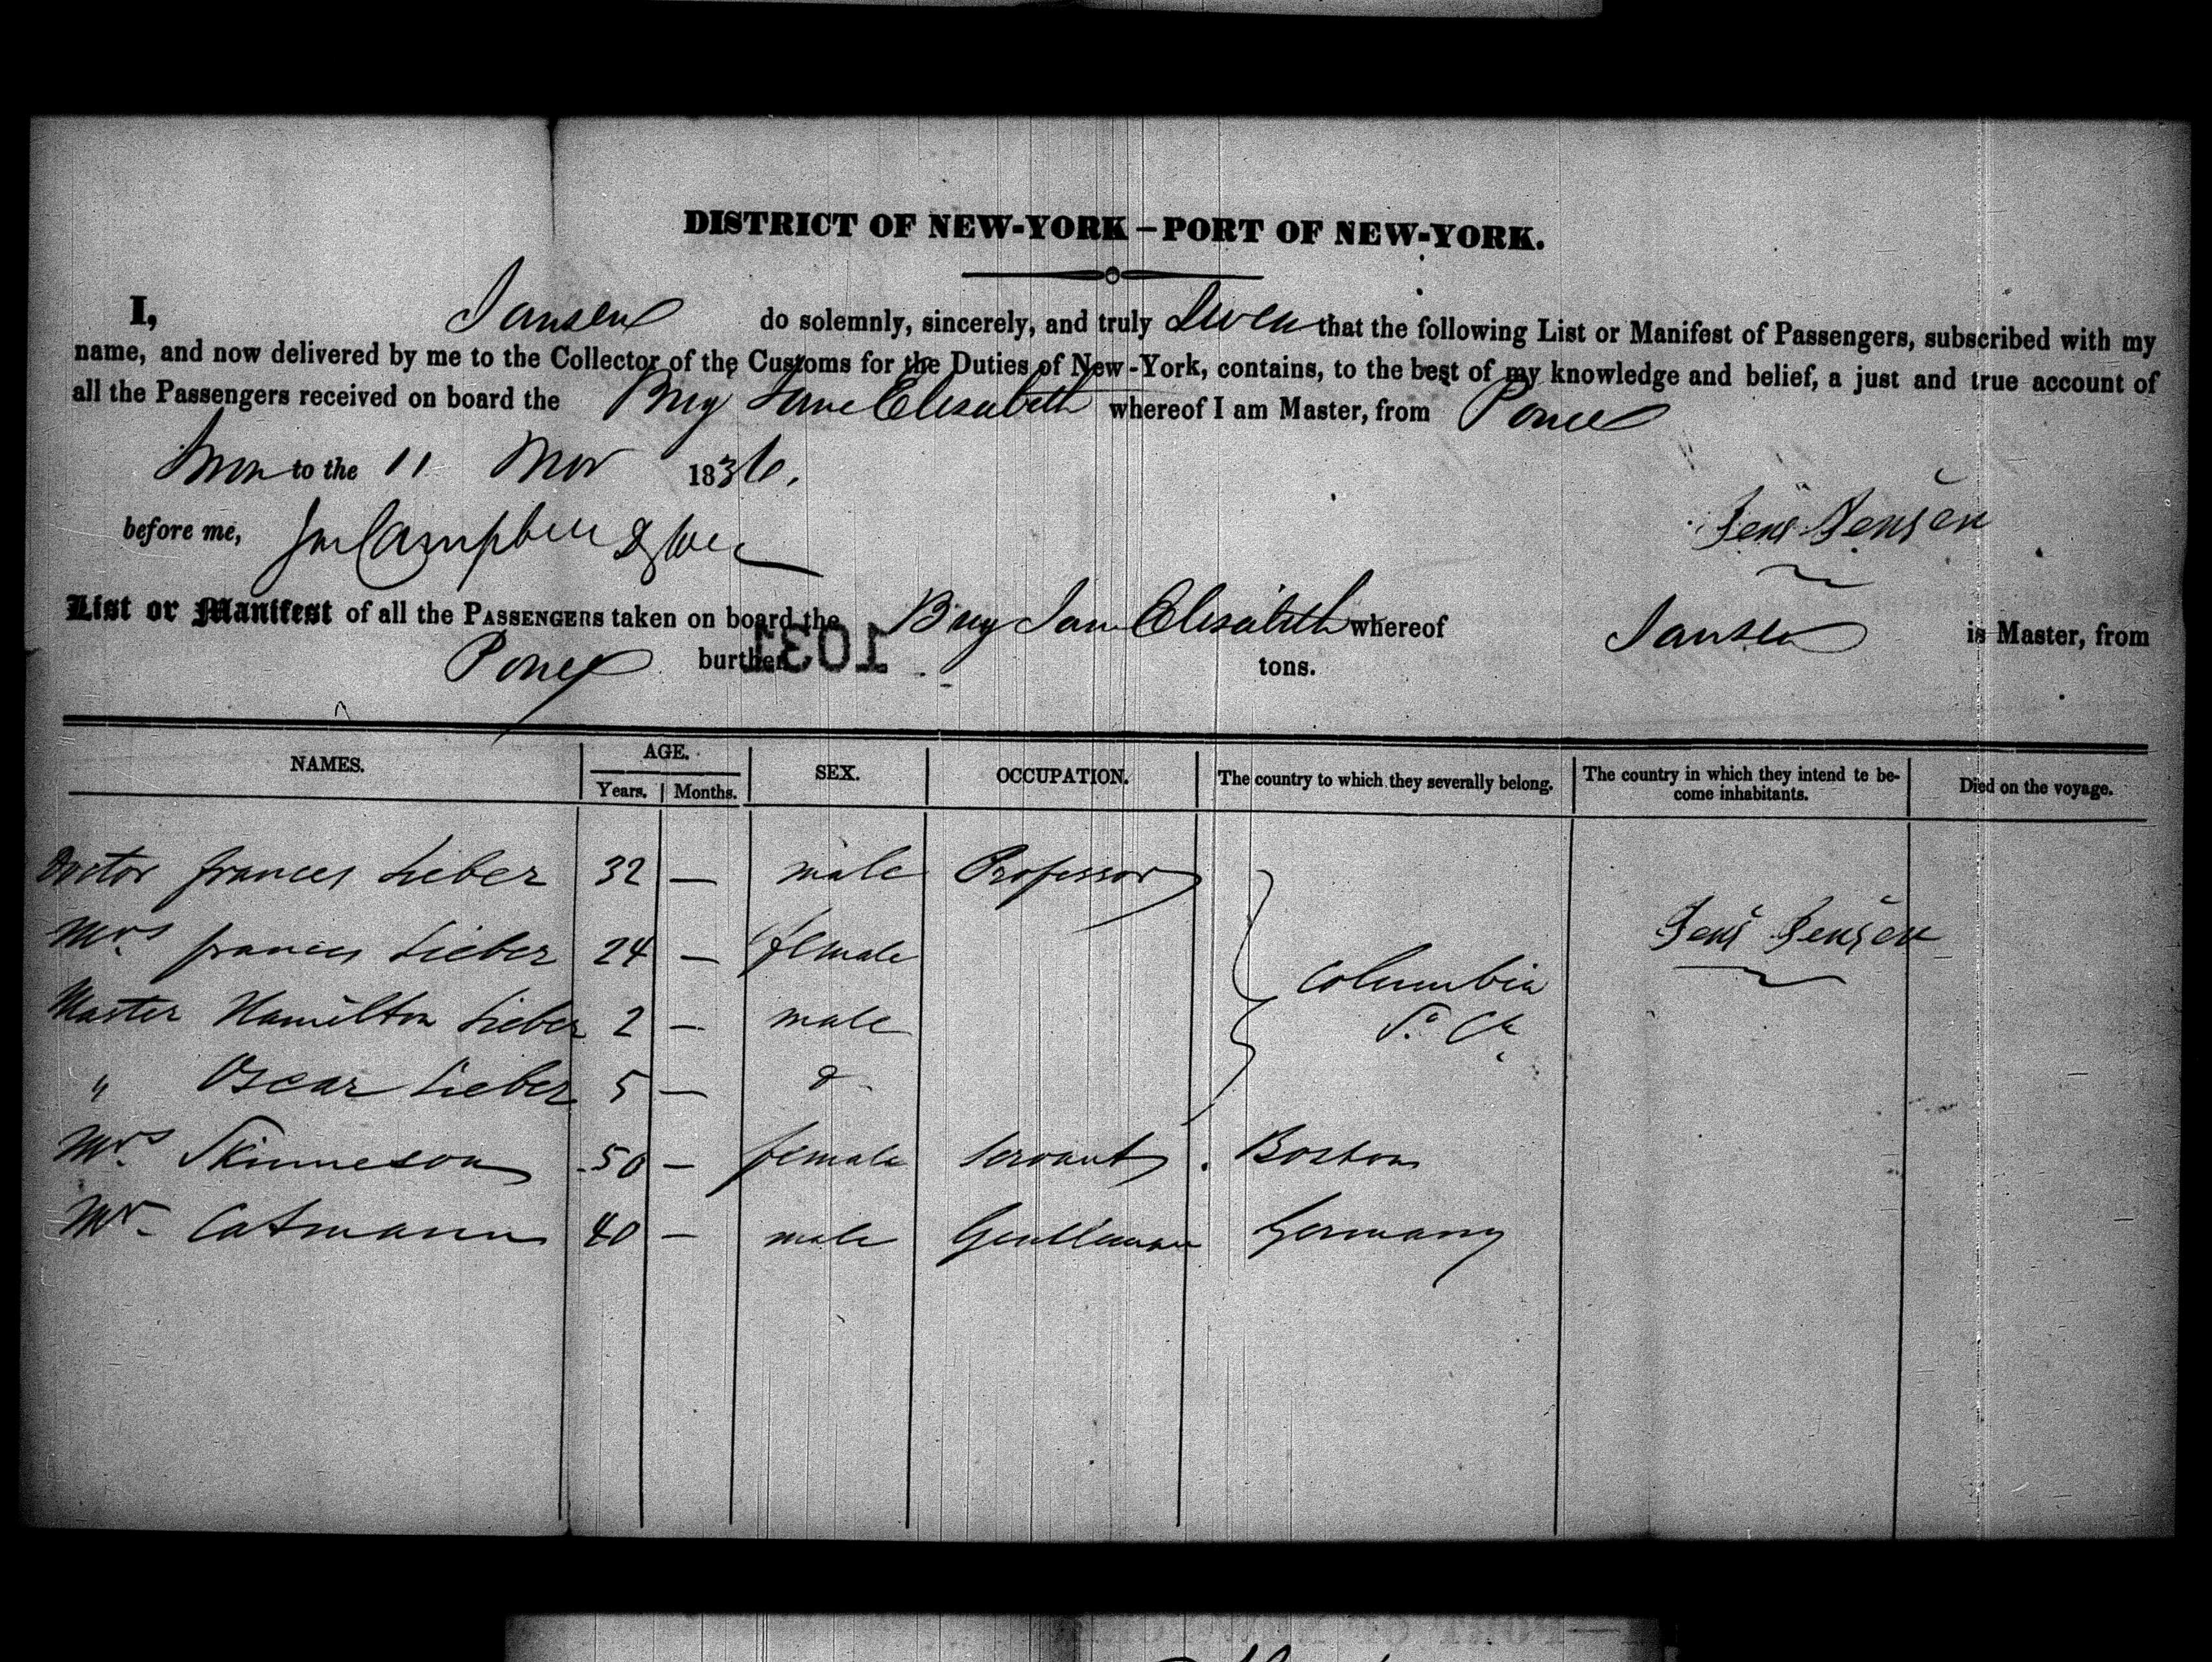 DISTRICT OF NEW-YORK – PORT OF NEW-YORK.
I, Jansen do solemnly, sincerely, and truly Swear that the following List or Manifest of Passengers, subscribed with my
name, and now delivered by me to the Collector of the Customs for the Duties of New-York, contains, to the best of my knowledge and belief, a just and true account of
all the Passengers received on board the Brig Jane Elisabeth whereof I am Master, from Ponce
Sworn to the 11 Nov 1836.
before me, Campbell
Jens Jensen
List or Manifest of all the PASSENGERS taken on board the Brig Jane Elisabeth whereof Jansen is Master, from
Ponce burthen tons.
1031
NAMES. AGE. SEX. OCCUPATION. The country to which they severally belong. The country in which they intend to become inhabitants. Died on the voyage.
Years. Months.
Doctor frances Lieber 32 — male Professor
Mrs frances Lieber 24 — female
Master Hamilton Lieber 2 — male
" Oscar Lieber 5 — do
Columbia
So. Ca.
Jens Jensen
Mrs. Skinneson 50 — female Servant Boston
Mr. Catmann 40 — male Gentleman Germany